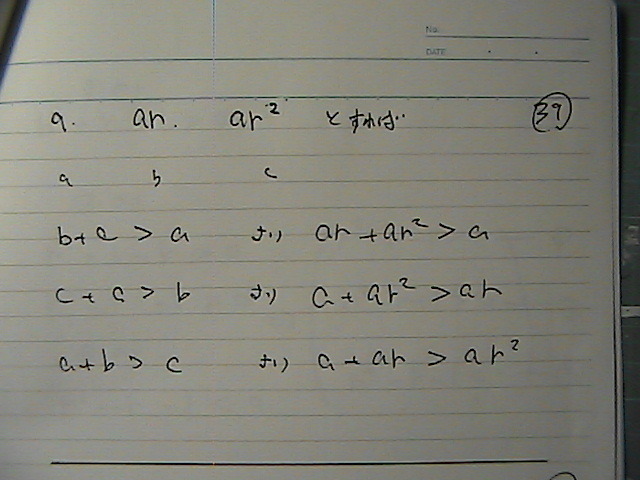 No.
DATE
a. ar. ar² とすれば… 39
a b c
b+c > a より ar + ar² > a
c + a > b より a + ar² > ar
a + b > c より a + ar > ar²